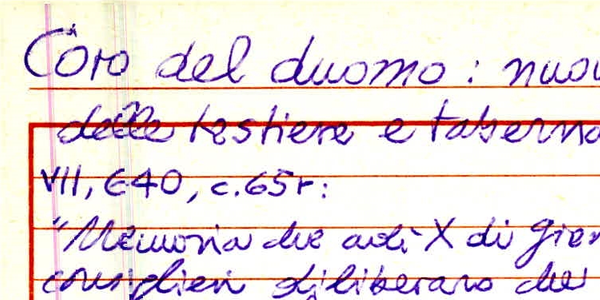 Coro del duomo: nuov
delle testiere e taberna
VII, E40, c.65r:
"Memoria che adi X di gien
consiglieri diliberaro che